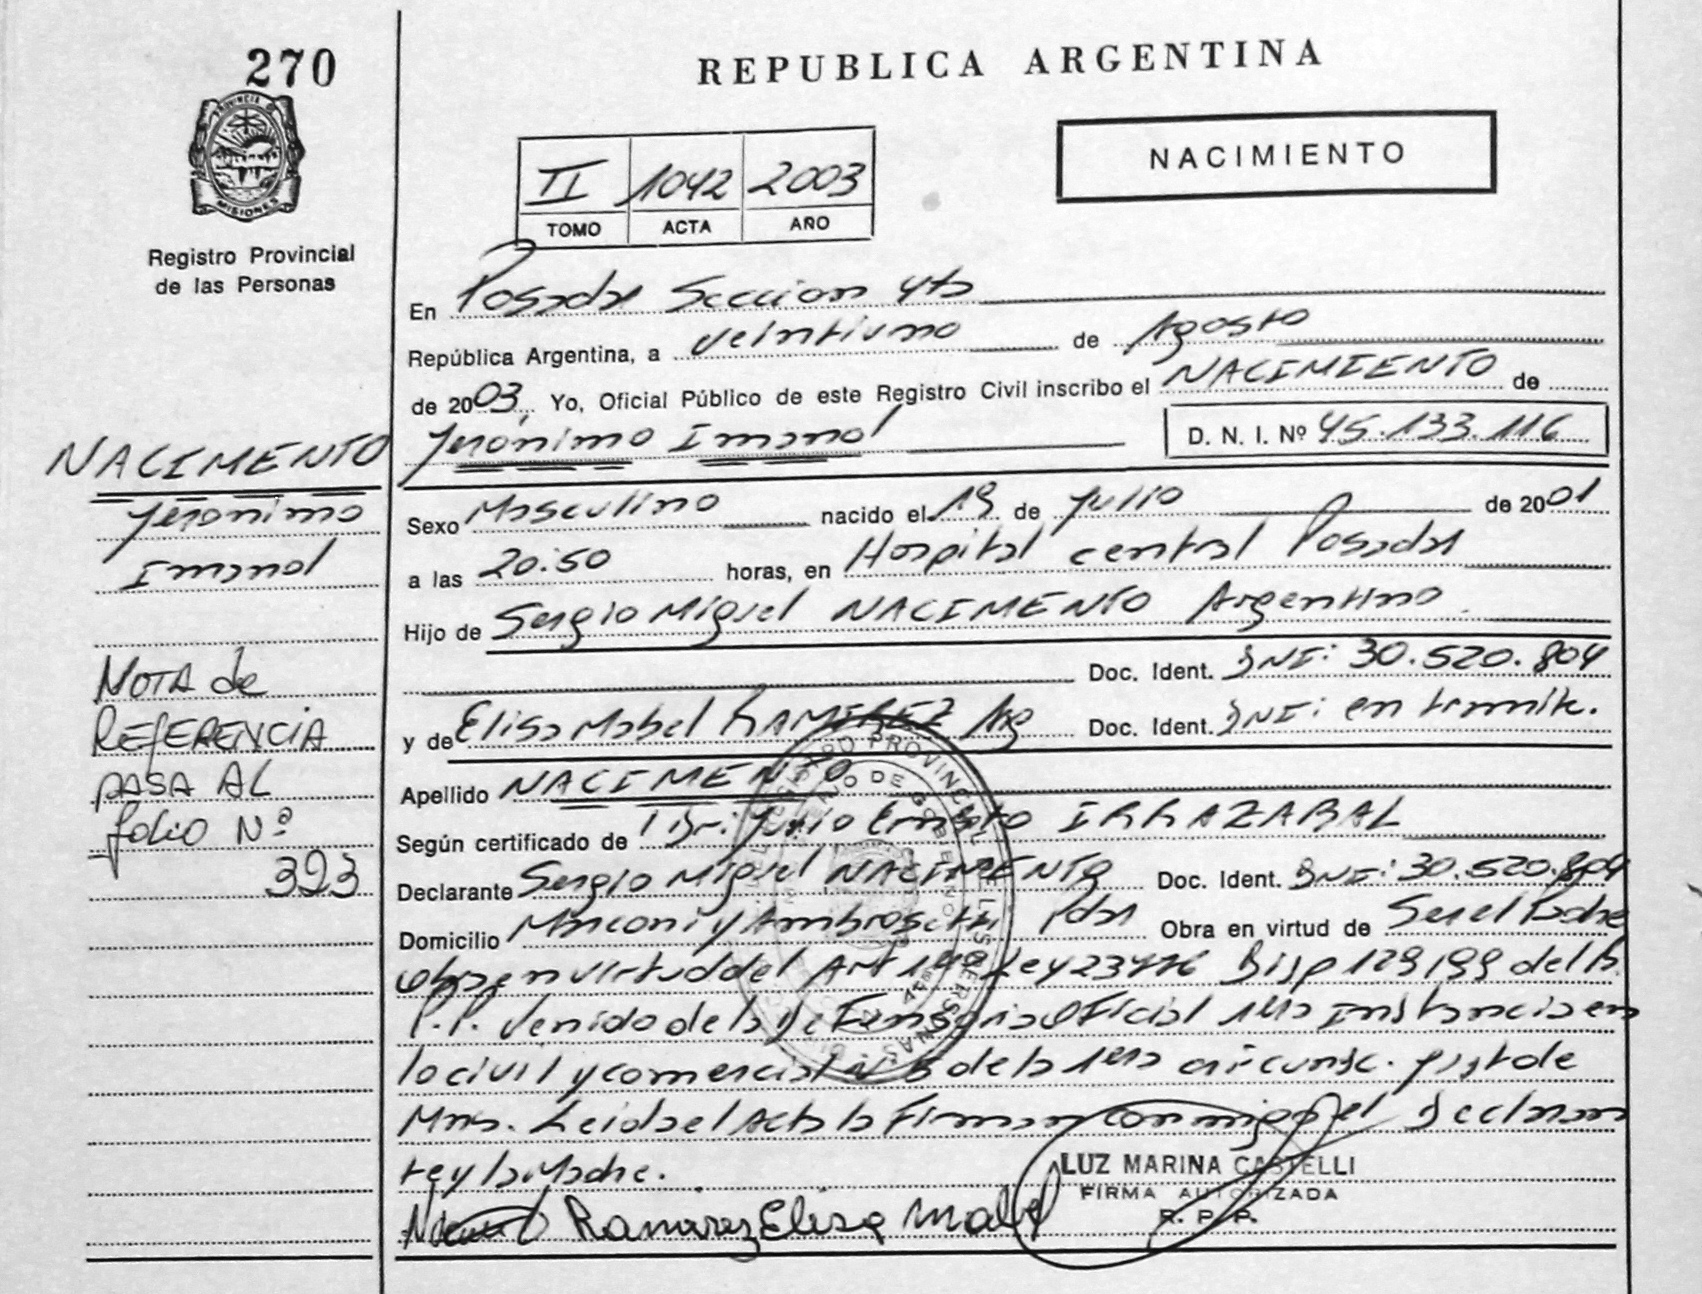 270
REPUBLICA ARGENTINA
PROVINCIA DE
MISIONES
Registro Provincial
de las Personas
II 1042 2003
TOMO ACTA AÑO
NACIMIENTO
En Posadas Seccion 4ta
República Argentina, a veintiuno de Agosto
de 2003, Yo, Oficial Público de este Registro Civil inscribo el NACIMIENTO de
Jerónimo Imanol D. N. I. Nº 45.133.116
Sexo Masculino nacido el 19 de Julio de 2001
a las 20:50 horas, en Hospital central Posadas
Hijo de Sergio Miguel NACIMENTO Argentino
Doc. Ident. DNI: 30.520.804
y de Elisa Mabel RAMIREZ Arg Doc. Ident. DNI: en tramite.
Apellido NACIMENTO
Según certificado de Dr. Julio Ernesto IRRAZABAL
Declarante Sergio Miguel NACIMENTO Doc. Ident. DNI: 30.520.804
Domicilio Marconi y Ambrosetti Pdas Obra en virtud de Ser el Padre
obra en virtud del Art 1ro Ley 23776 Disp 129/99 del R.
P.P. Venido de la Defensoria Oficial 1ra Instancia en
lo civil y comercial de la 1era circunsc. Jud de
Mnes. Leida el Acta la Firman conmigo el Declaran
te y la Madre.
LUZ MARINA CASTELLI
FIRMA AUTORIZADA
R. P. P.
Ramirez Elisa Mabel
NACIMENTO
Jeronimo
Imanol
NOTA de
REFERENCIA
PASA AL
folio Nº
393